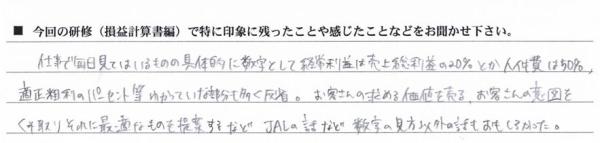 ■ 今回の研修（損益計算書編）で特に印象に残ったことや感じたことなどをお聞かせ下さい。
仕事で毎日見てはいるものの具体的に数字として経常利益は売上総利益の20%とか人件費は50%、
適正粗利のパーセント等わかっていない部分も多く反省。お客さんの求める価値を売る、お客さんの意図を
くみ取りそれに最適なものを提案するなど JALの話など 数字の見方以外の話もおもしろかった。